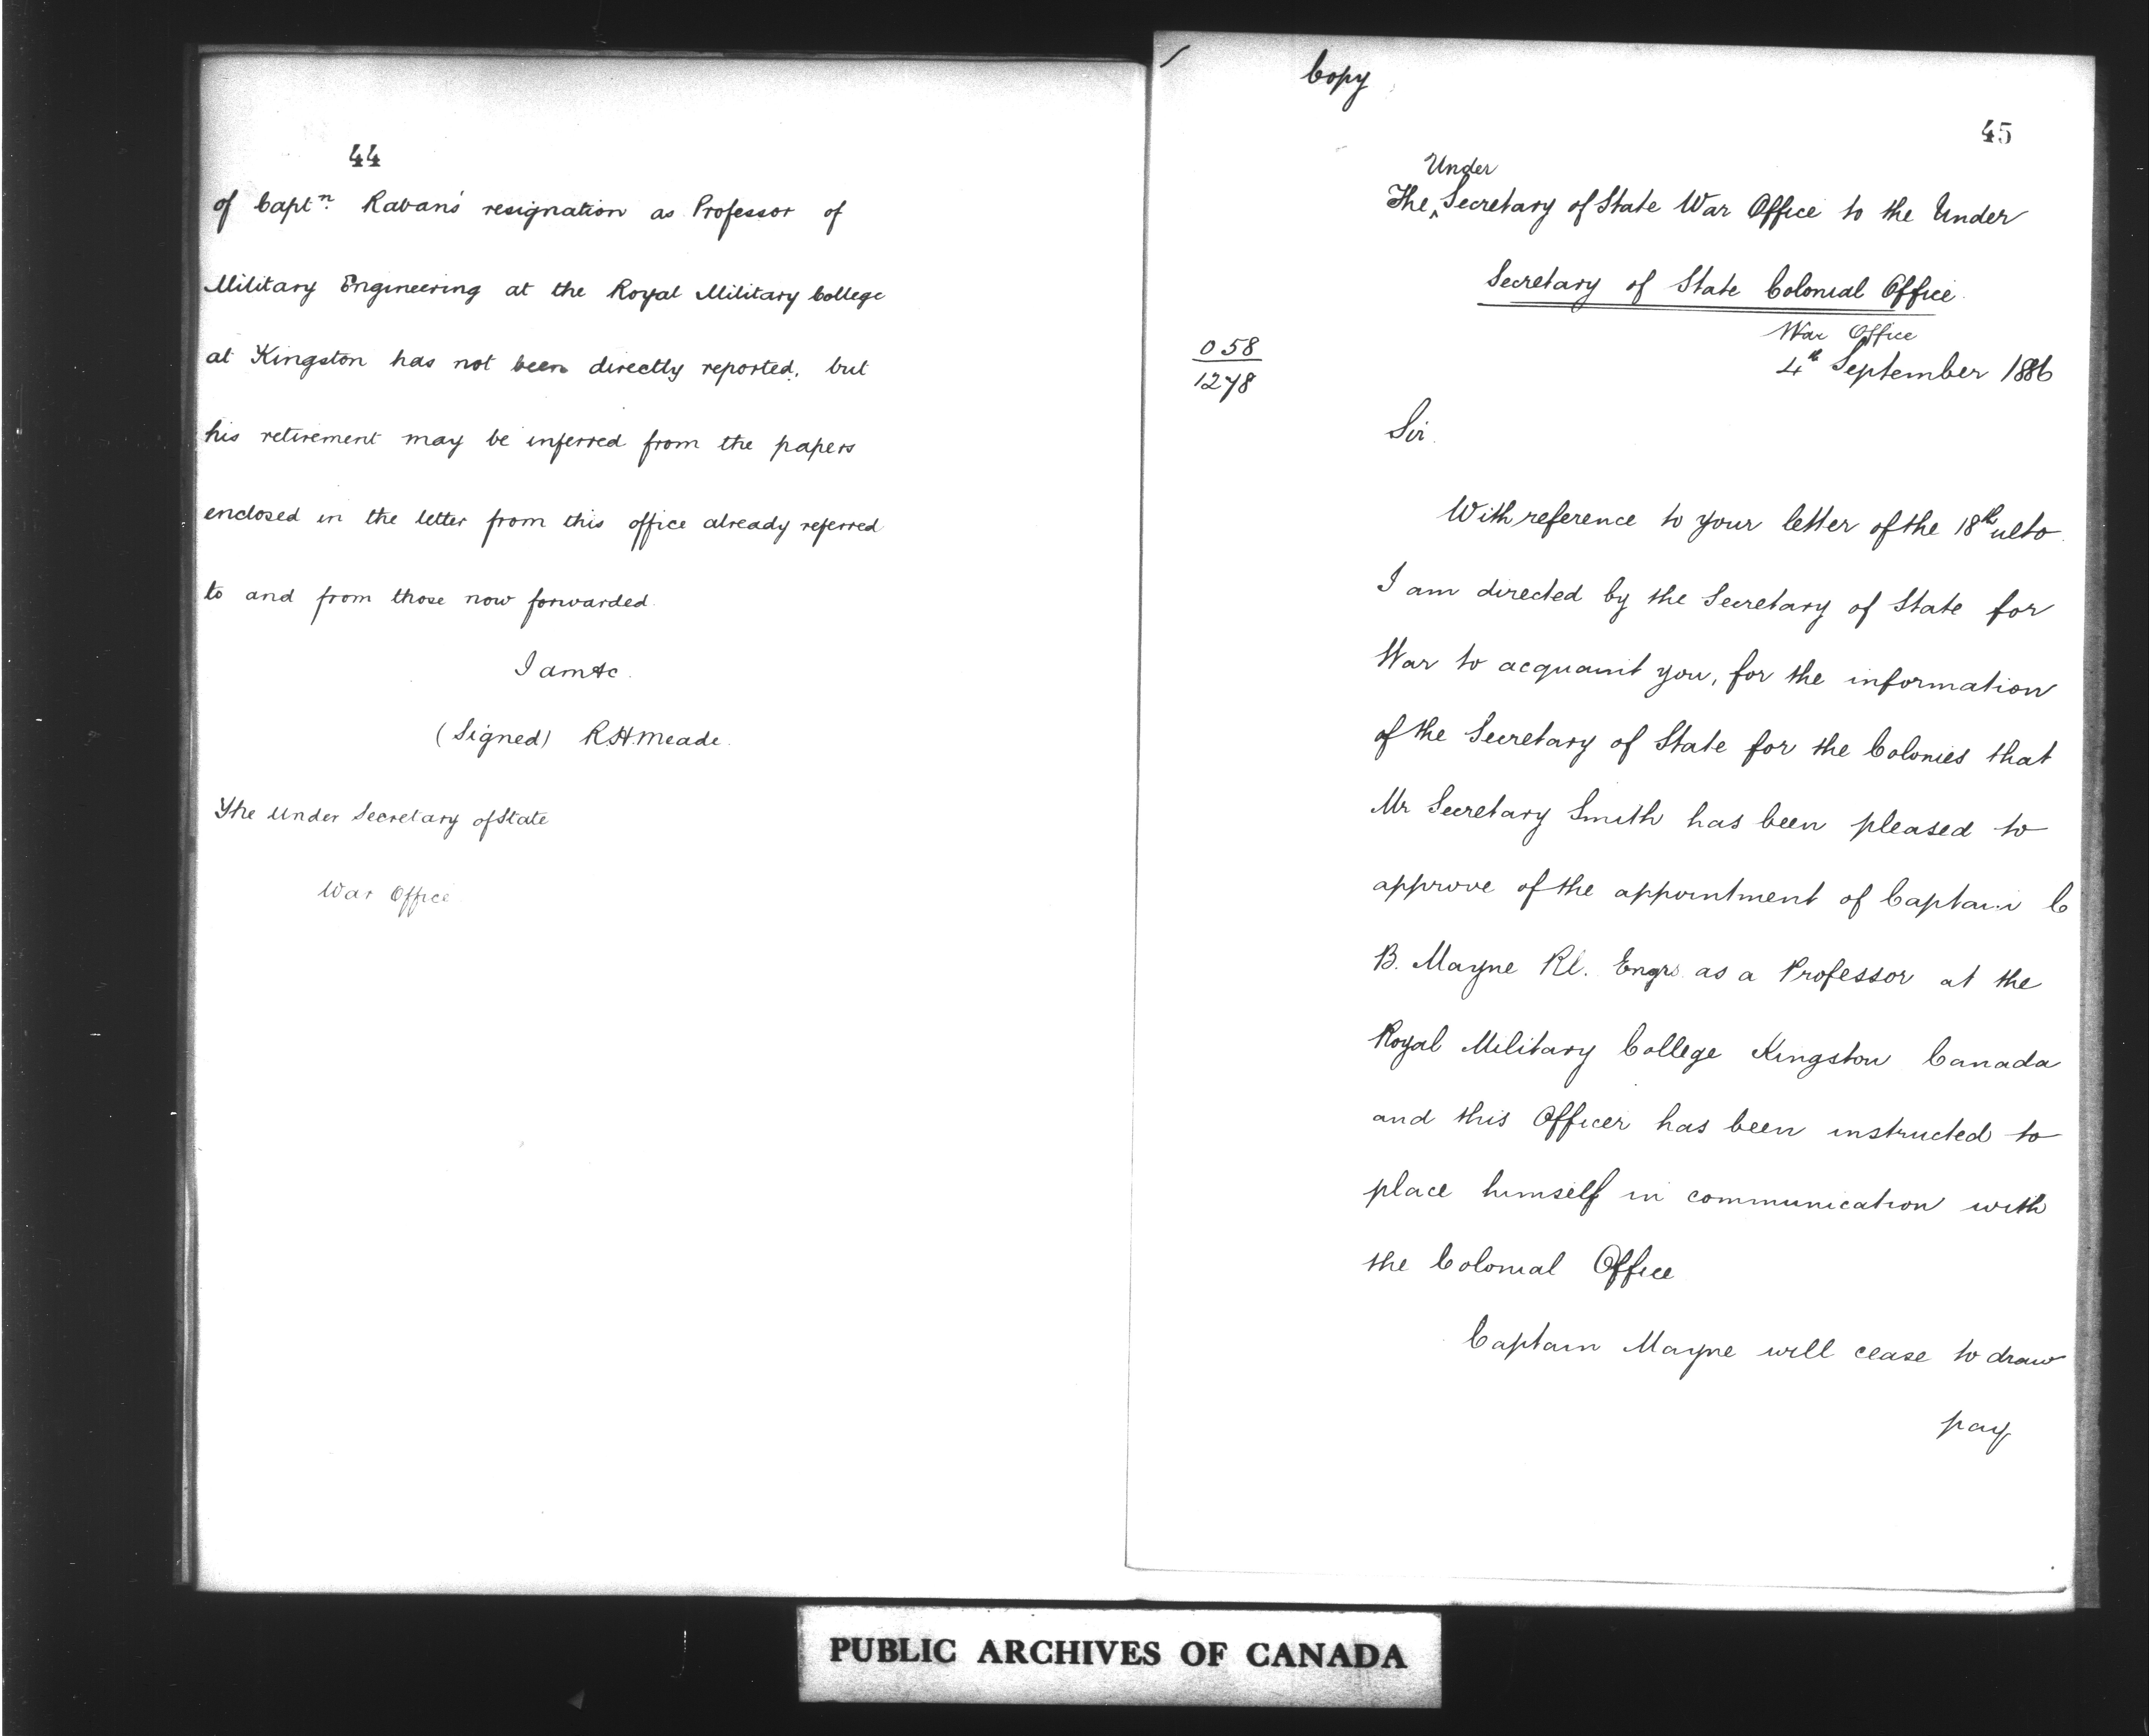 44
of Captn. Raban's resignation as Professor of
Military Engineering at the Royal Military College
at Kingston has not been directly reported, but
his retirement may be inferred from the papers
enclosed in the letter from this office already referred
to and from those now forwarded.
I am &c.
(Signed) R.H. Meade.
The Under Secretary of State
War Office
Copy
45
Under
The ‸ Secretary of State War Office to the Under
Secretary of State Colonial Office.
War Office
4th September 1886
058
1278
Sir.
With reference to your letter of the 18th ulto.
I am directed by the Secretary of State for
War to acquaint you, for the information
of the Secretary of State for the Colonies that
Mr Secretary Smith has been pleased to
approve of the appointment of Captain C
B. Mayne Rl. Engrs. as a Professor at the
Royal Military College Kingston Canada
and this Officer has been instructed to
place himself in communication with
the Colonial Office
Captain Mayne will cease to draw
pay
PUBLIC ARCHIVES OF CANADA